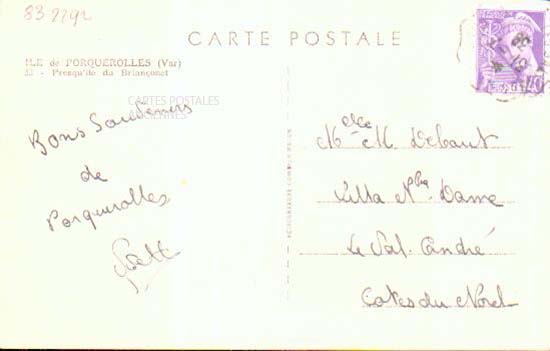 83 229L
CARTE POSTALE
ILE de PORQUEROLLES (Var)
52 - Presqu'ile du Briançonet
CARTES POSTALES
ANCIENNES
Bons Souvenirs
de
Porquerolles
Melle M. Debaut
Villa N. Dame
Le Val André
Cotes du Nord